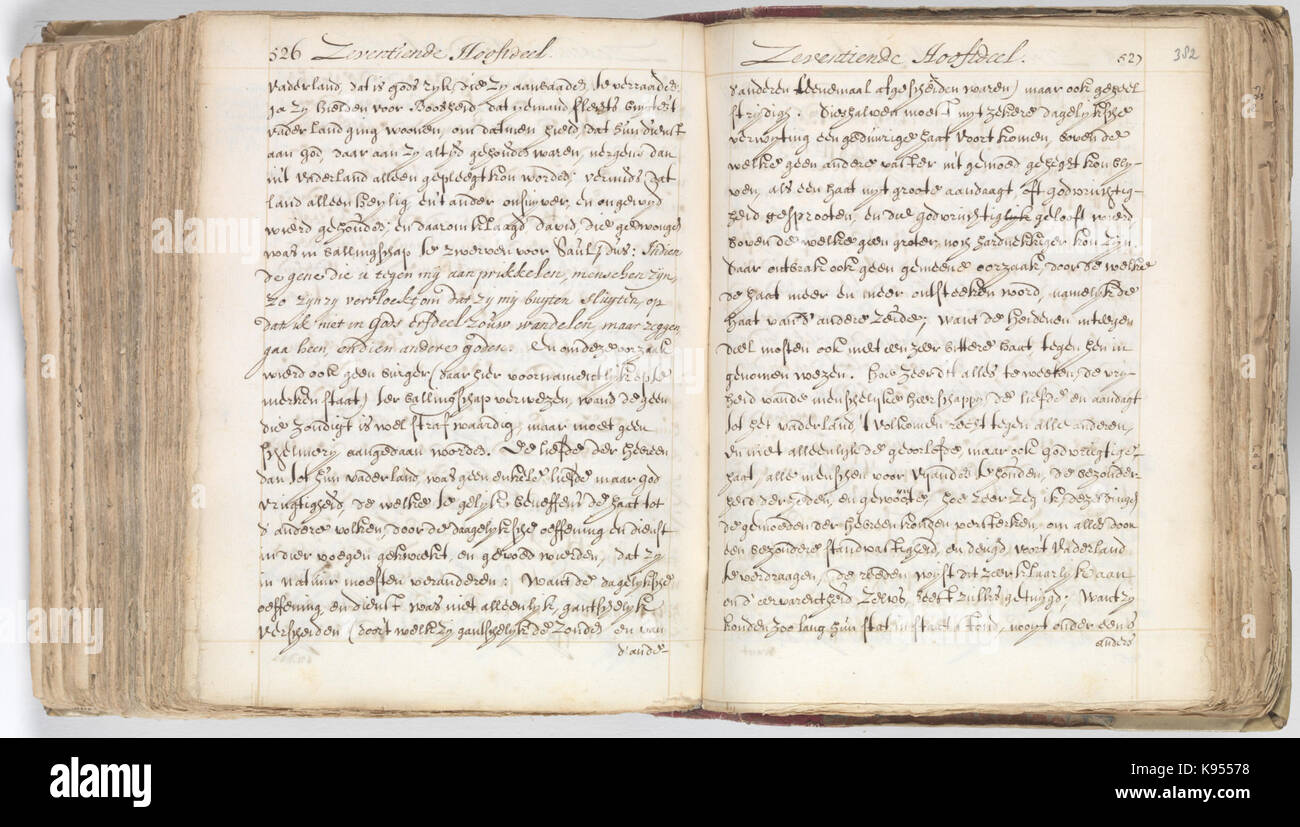 526 Zeventiende Hoofdeel.
vaderland, dat is gods ryk, die zy aanbaade, te verraaden,
ja zy hielden voor Boosheid, dat yemand slegts buyten 't
vaderland ging woonen, om datmen hield, dat hun dienst
aan god, daar aan zy altijd gehouden waren, nergens dan
in 't vaderland alleen gepleegt kon worden; vermids dat
land alleen heylig en 't ander onsuyver, en ongewyd
wierd gehouden; en daarom klaagd david, die gedwongen
was in ballingschap te zwerven voor Saul, dus: Indien
de gene die u tegen my aanprukkelen, menschen zyn,
zo zyn zy vervloekt om dat zy my buyten sluyten, op
dat ik niet in Gods erfdeel zouw wandelen, maar zeggen,
gaa heen, en dien andere goden. En om deze oorzaak
wierd ook geen burger (daar hier voornamentlijk op te
merken staat) ter ballingschap verwezen, want de geen
die zondigt is wel strafwaardig, maar moet geen
schelmery aangedaan worden. De liefde der hebreen
dan tot hun vaderland, was geen enkele liefde maar god
vrugtigheid, de welke te gelijk beneffens de haat tot
d' andere volken, door de daagelyksche oeffening en dienst
in dier voegen gekweekt, en gevoed wierden, dat zy
in natuur moesten veranderen: Want de dagelyksche
oeffening en dienst was niet alleenlyk gantschelyk
verscheiden (door 't welk zy gantschelyk de zonde en van
d' ande-
Zeventiende Hoofdeel. 527
382
d'anderen t'eenemaal afgescheiden waren) maar ook geheel
strijdig. Dieshalven moest uyt zekere dagelyksche
verwyting een gedurige haat voort komen, boven de
welke geen andere vaster in 't gemoed gehegt kon bly-
ven, als een haat uyt groote aandagt, oft godvruchtig-
heid gesprooten, en die godvruchtiglyk gelooft wierd
boven de welke geen groter, noch hardnekkiger kon zyn.
daar ontbrak ook geen gemeene oorzaak, door de welke
de haat meer en meer ontsteeken word, namelyk de
haat van d' andere zeide; Want de heidenen in tegen
deel mosten ook met een zeer bittere haat tegen hen in
genomen wezen. hoe zeer dit alles te weeten, de vry-
heid van de menschelyke heerschappy, de liefde en aandagt
tot het vaderland, 't volkomen recht tegen alle anderen,
en niet alleenlijk de geoorlofde, maar ook godvrugtige
haat, alle menschen voor vyanden te houden, de bezonder-
heid der zeden, en gewoonte, hoe zeer zeg ik, deze dingen
de gemoeden der hebreen konden versterken, om alles door
een bezondere standvastigheid, en deugd, voor 't vaderland
te verdraagen, de reeden wyst dit zeer klaarlyk aan
en d' ervarentheid zelvs heeft zulks getuygd; Want zy
konden zoo lang hun stat in staet stond, nooyt onder eens
anders
alamy
Image ID: K95578
www.alamy.com